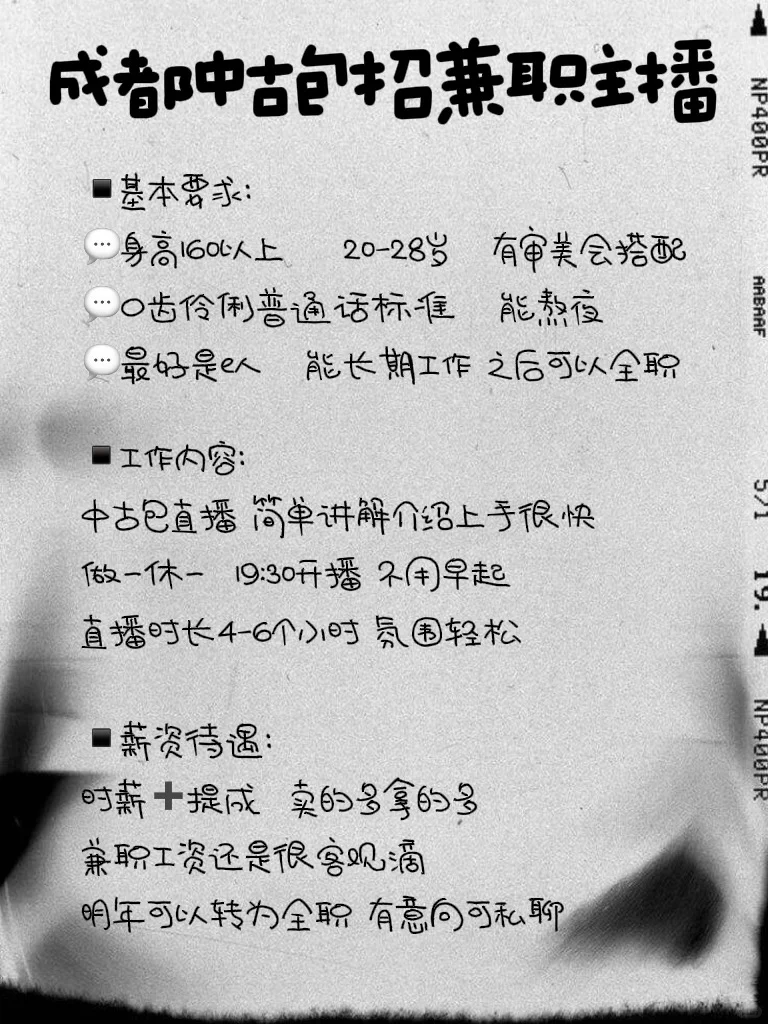 成都中古包招兼职主播
基本要求:
身高160以上 20-28岁 有审美会搭配
口齿伶俐普通话标准 能熬夜
最好是e人 能长期工作 之后可以全职
工作内容:
中古包直播 简单讲解介绍上手很快
做一休一 19:30开播 不用早起
直播时长4-6个小时 氛围轻松
薪资待遇:
时薪➕提成 卖的多拿的多
兼职工资还是很客观滴
明年可以转为全职 有意向可私聊
NP400PR
AABAAF
5/1
19.
NP400PR